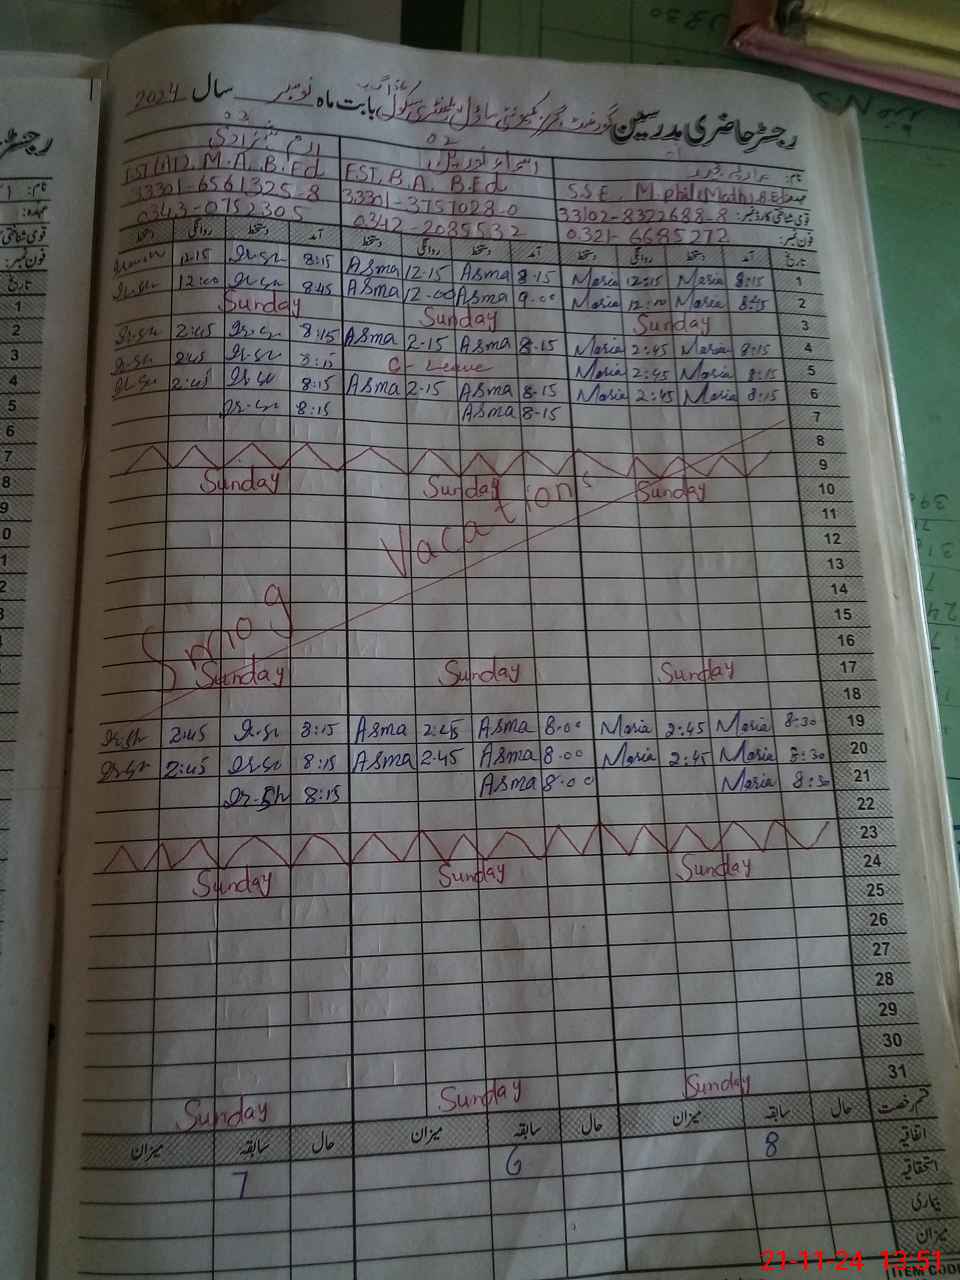 رجسٹر حاضری مدرسین گورنمنٹ گرلز کمیونٹی ماڈل ایلیمنٹری سکول بابت ماہ نومبر سال 2024
نام:
02
EST(AT). M.A. B.Ed EST. B.A. B.Ed S.S.E. M.phil(Math) B.Ed عہدہ:
33301-6561325-8 33301-3751028-0 33102-8322688-8 قومی شناختی کارڈ نمبر:
0343-0752305 0342-2085532 0321-6685272 فون نمبر:
دستخط روانگی دستخط آمد دستخط روانگی دستخط آمد دستخط روانگی دستخط آمد تاریخ
12:15 8:15 Asma 12-15 Asma 8-15 Maria 12:15 Maria 8:15 1
12:00 8:45 Asma 12-00 Asma 9-00 Maria 12:00 Maria 8:45 2
Sunday Sunday Sunday 3
2:45 8:15 Asma 2-15 Asma 8-15 Maria 2:45 Maria 8:15 4
2:45 8:15 C-Leave Maria 2:45 Maria 8:15 5
2:45 8:15 Asma 2-15 Asma 8-15 Maria 2:45 Maria 8:15 6
8:15 Asma 8-15 7
8
9
Sunday Sunday Sunday 10
11
12
13
14
15
16
Smog Vacations
Sunday Sunday Sunday 17
18
2:45 8:15 Asma 2:45 Asma 8-00 Maria 2:45 Maria 8-30 19
2:45 8:15 Asma 2-45 Asma 8-00 Maria 2:45 Maria 8:30 20
8:15 Asma 8-00 Maria 8:30 21
22
23
Sunday Sunday Sunday 24
25
26
27
28
29
30
31
Sunday Sunday Sunday
میزان سابقہ حال میزان سابقہ حال میزان سابقہ حال قسم رخصت
7 6 8 اتفاقیہ
استحقاقیہ
بیماری
میزان
ITEM CODE
21-11-24 13:51